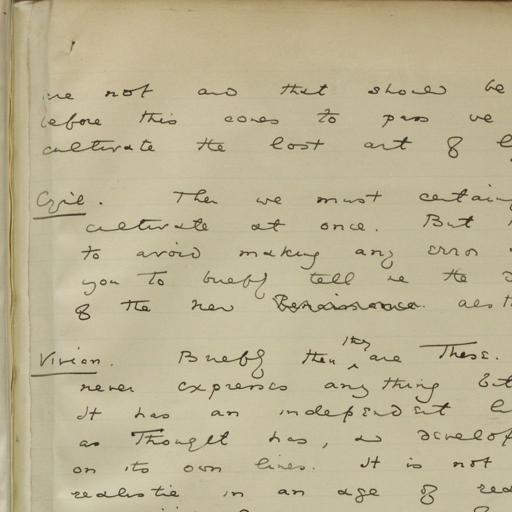 are not and that should be
before this comes to pass we
cultivate the lost art of
Cyril. Then we must certain
cultivate at once. But
to avoid making any error
you to briefly tell me the
of the new Renaissance. aest
Vivian. Briefly then they are these.
never expresses anything but
It has an independent
as Thought has, and develop
on its own lines. It is not
realistic in an age of rea